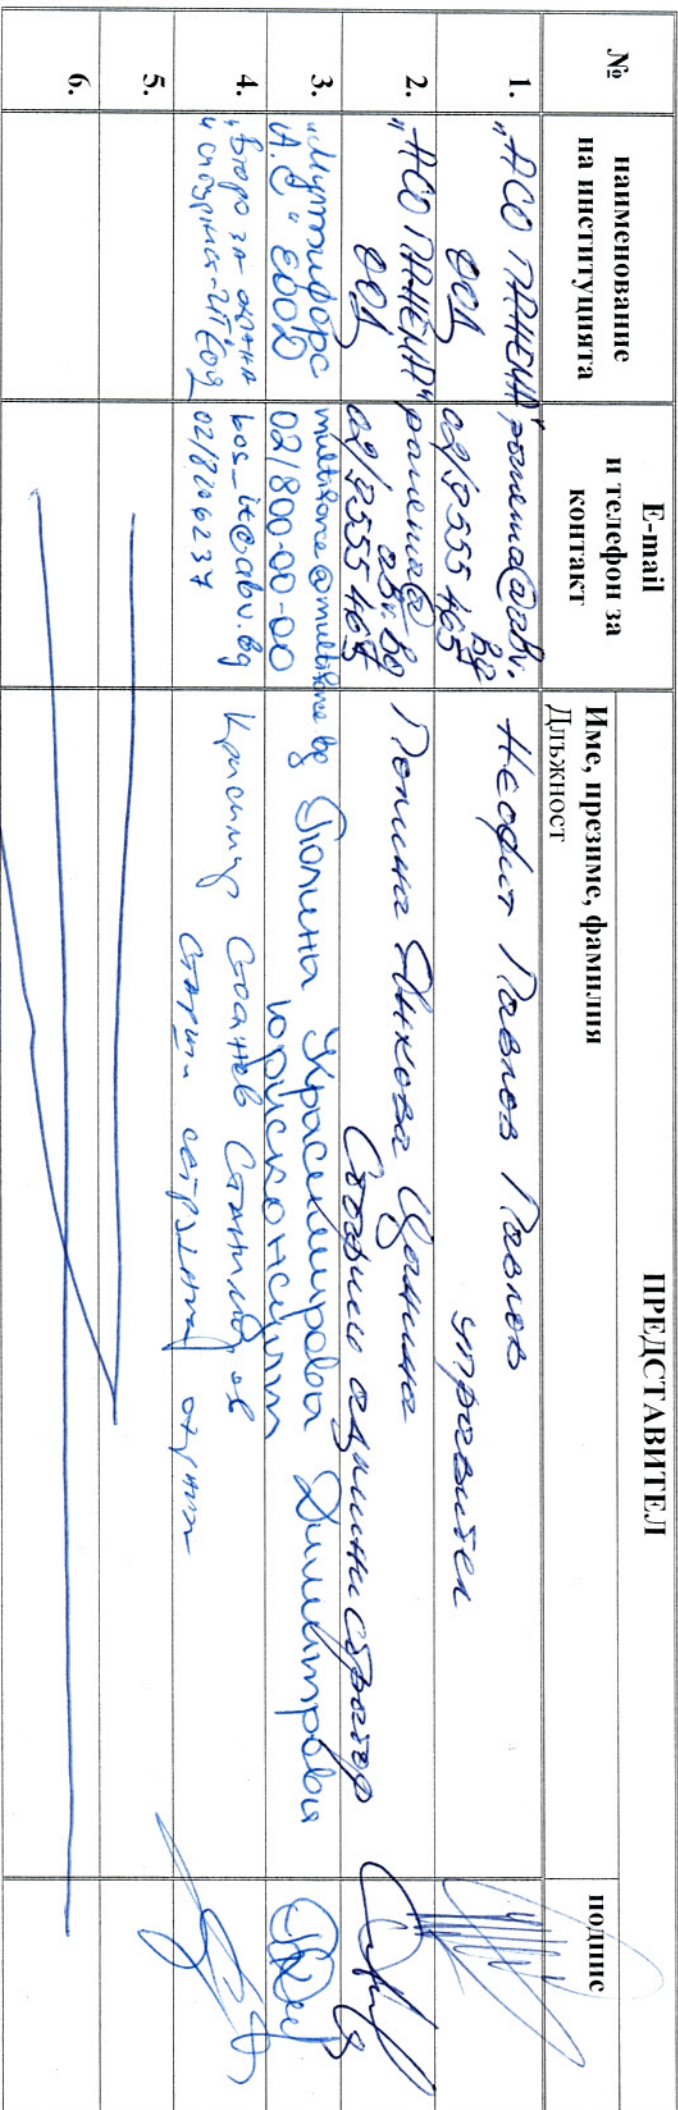 №
наименование
на институцията
E-mail
и телефон за
контакт
ПРЕДСТАВИТЕЛ
Име, презиме, фамилия
Длъжност
подпис
1.
"АСО ПАНЕМА"
ООД
panema@abv.
bg
02/9555 465
Неофит Павлов Павлов
управител
2.
"АСО ПАНЕМА"
ООД
panema@
abv.bg
02/9555 465
Полина Янкова Цанина
Старши администратор
3.
"Мултифорс
А.С" ЕООД
multiforce@multiforce.bg
02/800-00-00
Полина Красимирова Димитрова
юрисконсулт
4.
"Бюро за охрана
bos_it@abv.bg
Красимир Стоянов Стаматов
5.
6.